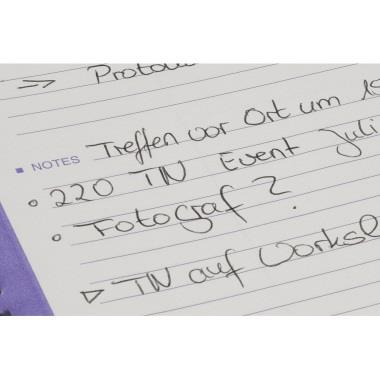 => Proto
NOTES Treffen vor Ort um
220 TN Event Juli
Fotograf?
▷ TN auf Works